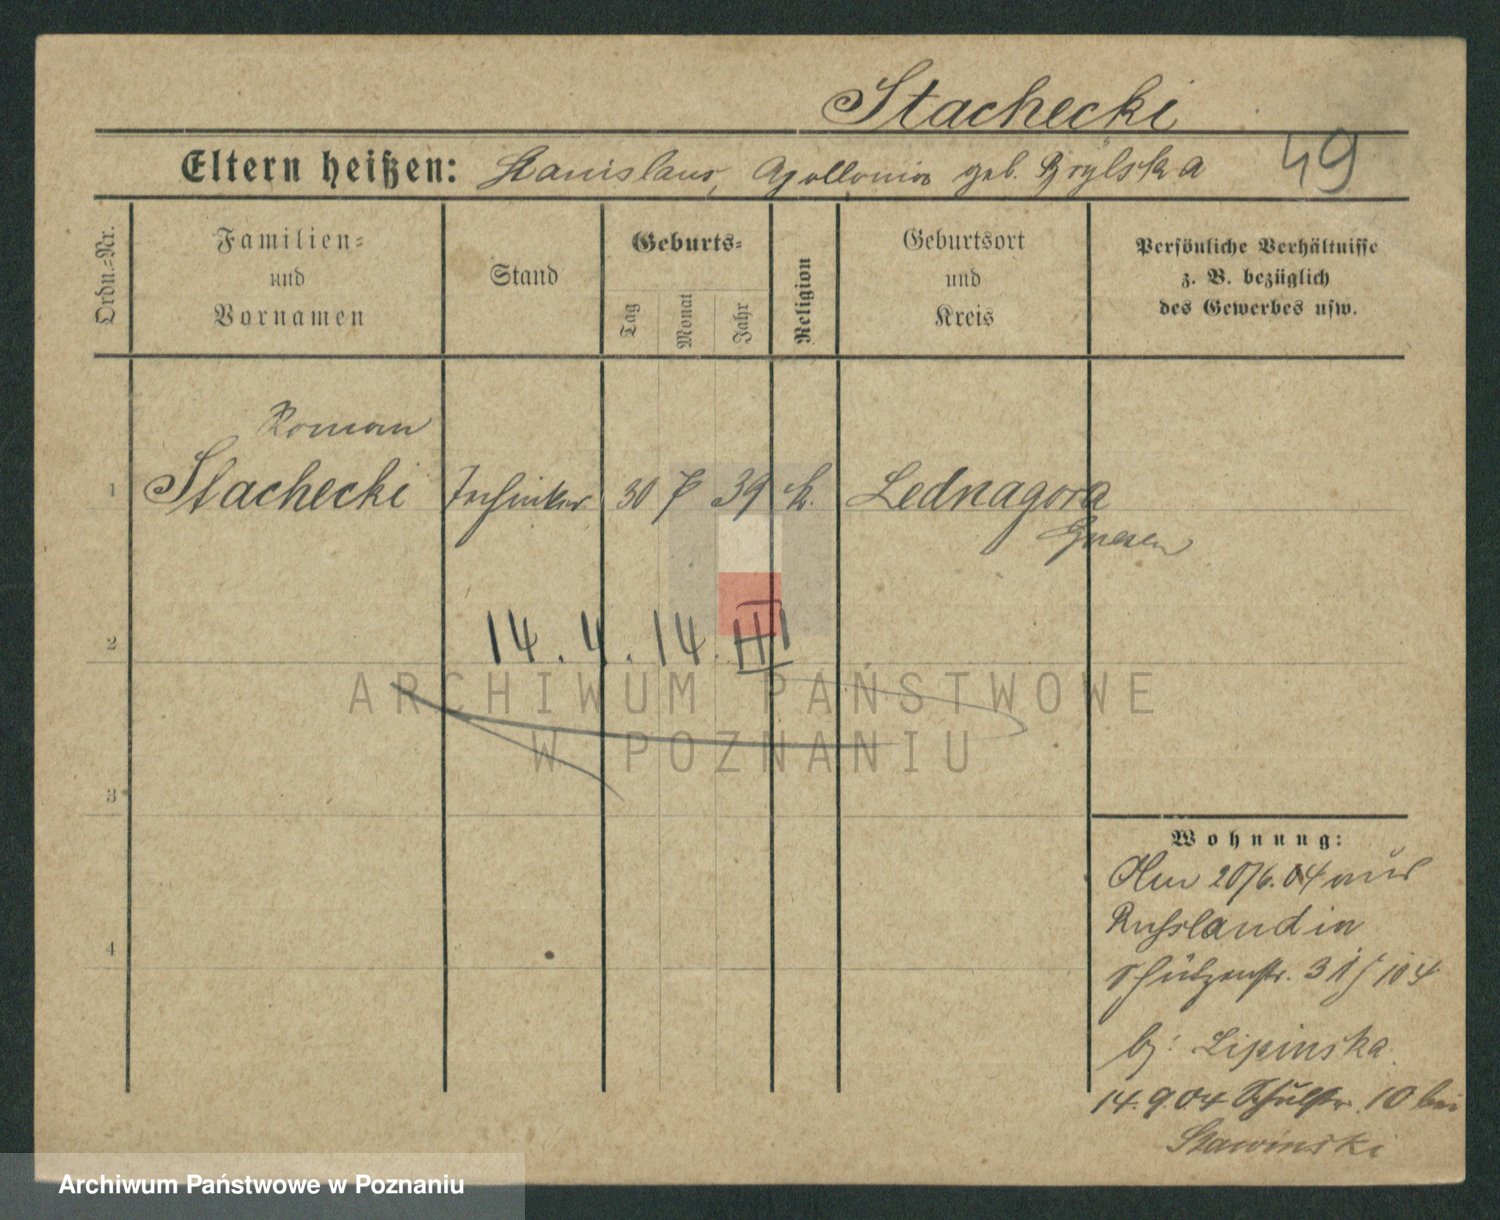 Stachecki
Eltern heißen: Stanislaus, Apollonia geb. Brylska
49
Ordn.-Nr.
Familien-
und
Vornamen
Stand
Geburts-
Tag
Monat
Jahr
Religion
Geburtsort
und
Kreis
Persönliche Verhältnisse
z. B. bezüglich
des Gewerbes usw.
Roman
1 Stachecki Techniker 30 7 39 k. Lednagora
Gnesen
2
14.4.14. III
3
4
Wohnung:
20/6.04 aus
Russland in
Schützenstr. 31
bei Lipinska
14.9.04 Schulstr. 10 bei
Stawinski
ARCHIWUM PAŃSTWOWE
W POZNANIU
Archiwum Państwowe w Poznaniu